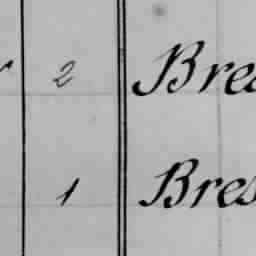 2 Bres
1 Bres